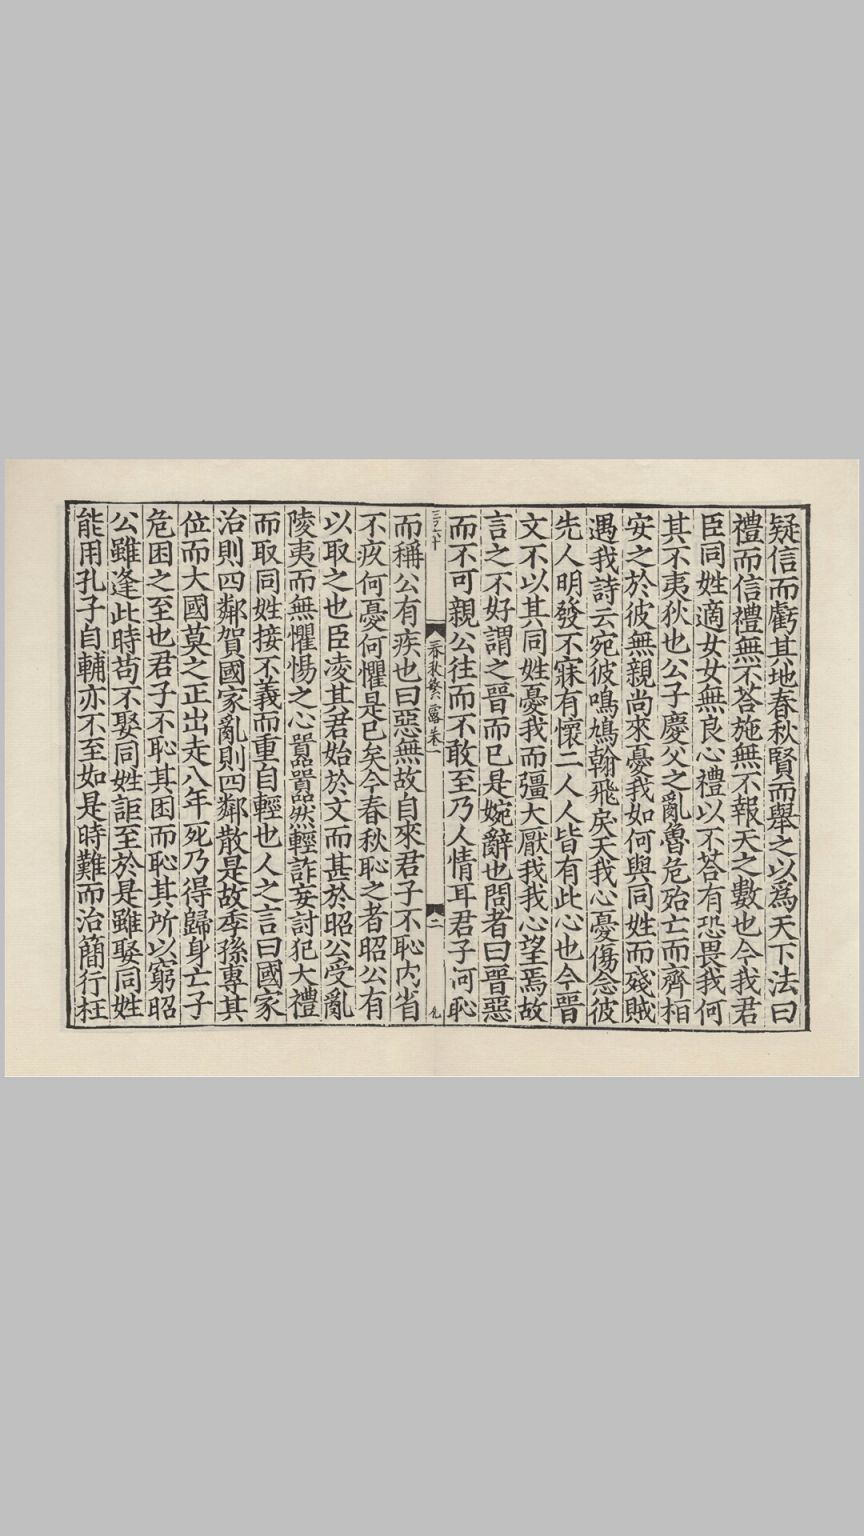 疑信而虧其地春秋賢而舉之以爲天下法曰
禮而信禮無不荅施無不報天之數也今我君
臣同姓適女女無良心禮以不荅有恐畏我何
其不夷狄也公子慶父之亂魯危殆亡而齊桓
安之於彼無親尚來憂我如何與同姓而殘賊
遇我詩云宛彼鳴鳩翰飛戾天我心憂傷念彼
先人明發不寐有懷二人人皆有此心也今晉
文不以其同姓憂我而彊大厭我我心望焉故
言之不好謂之晉而已是婉辭也問者曰晉惡
而不可親公往而不敢至乃人情耳君子何恥
三百六十
春秋繁露卷一
二
九
而稱公有疾也曰惡無故自來君子不恥内省
不疚何憂何懼是已矣今春秋恥之者昭公有
以取之也臣凌其君始於文而甚於昭公受亂
陵夷而無懼惕之心囂囂然輕詐妄討犯大禮
而取同姓接不義而重自輕也人之言曰國家
治則四鄰賀國家亂則四鄰散是故季孫專其
位而大國莫之正出走八年死乃得歸身亡子
危困之至也君子不恥其困而恥其所以窮昭
公雖逢此時苟不娶同姓詎至於是雖娶同姓
能用孔子自輔亦不至如是時難而治簡行枉